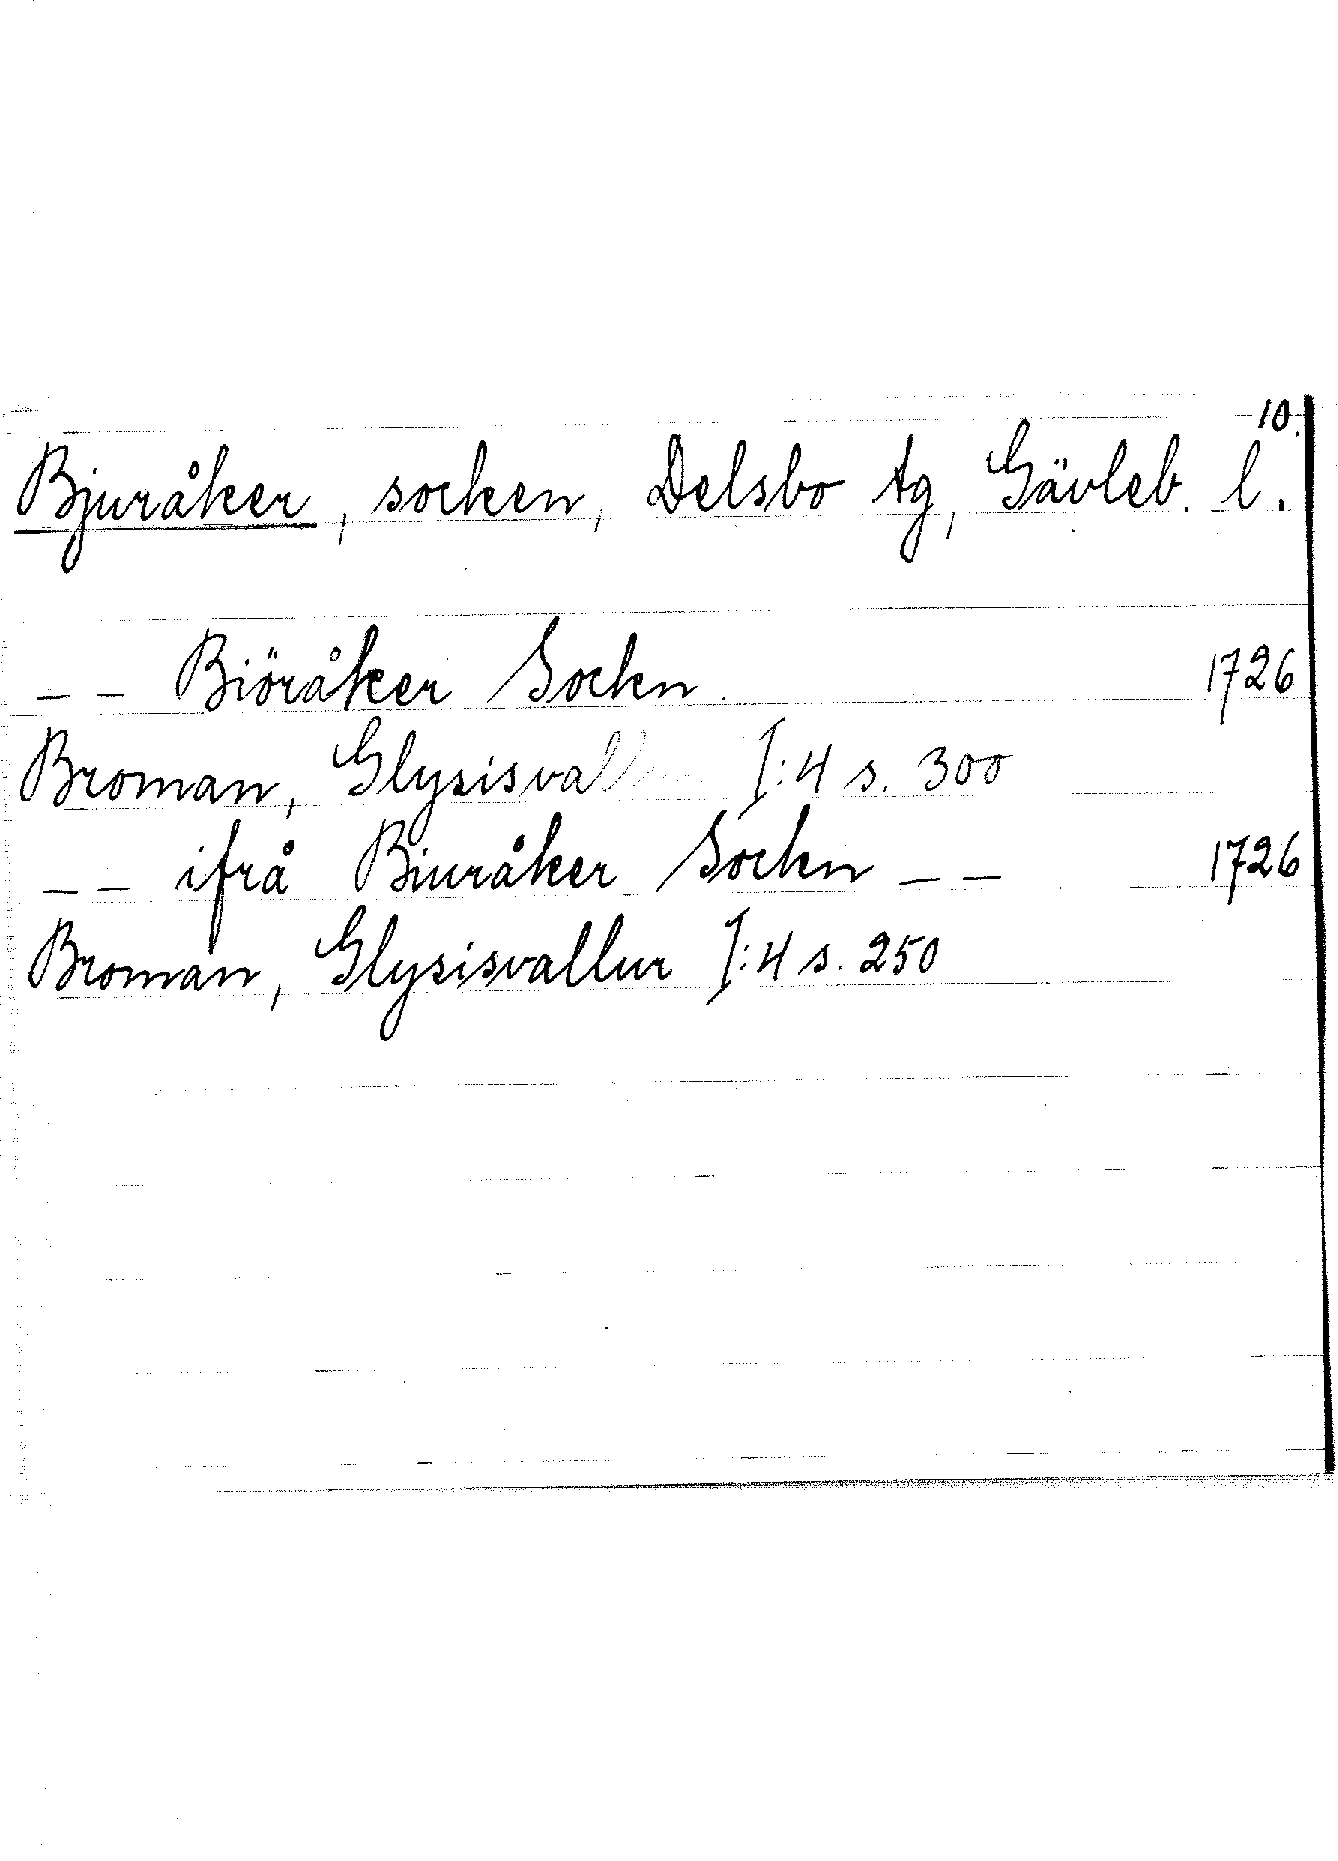 10.
Bjuråker, socken, Delsbo tg, Gävleb. l.
– – Biöråker Sockn. 1726
Broman, Glysisval I:4 s. 300
– – ifrå Biuråker Sockn – – 1726
Broman, Glysisvallur I:4 s. 250